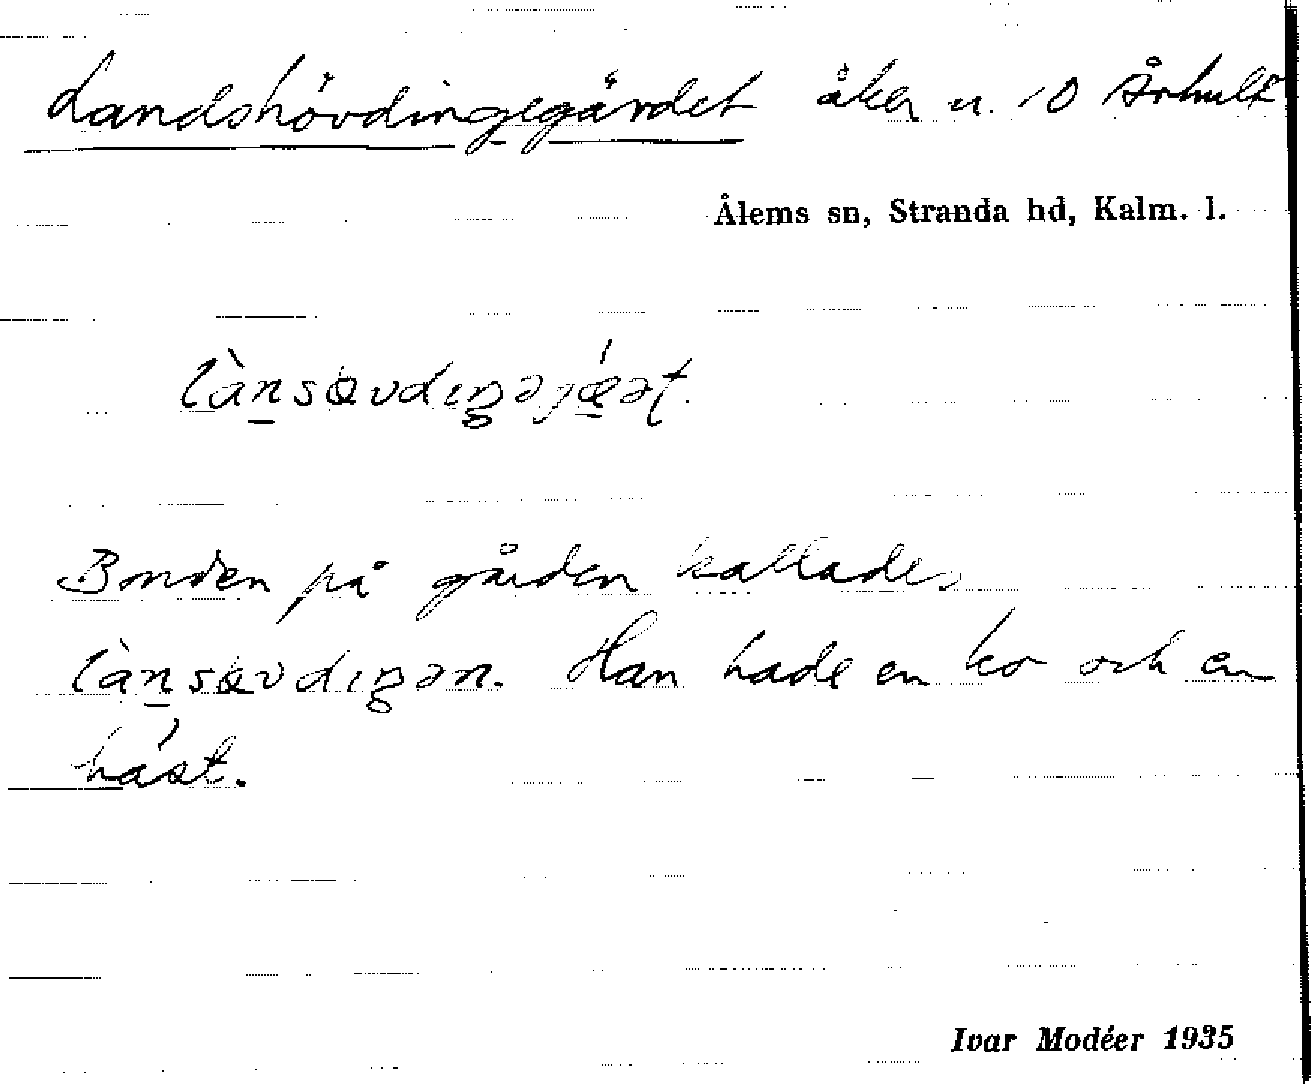 Landshövdingegärdet åker u. 10 Århult
Ålems sn, Stranda hd, Kalm. l.
là̱nsøvdıŋəjǽ̱ət.
Bonden på gården kallades
là̱nsøvdıŋən. Han hade en ko och en
häst.
Ivar Modéer 1935